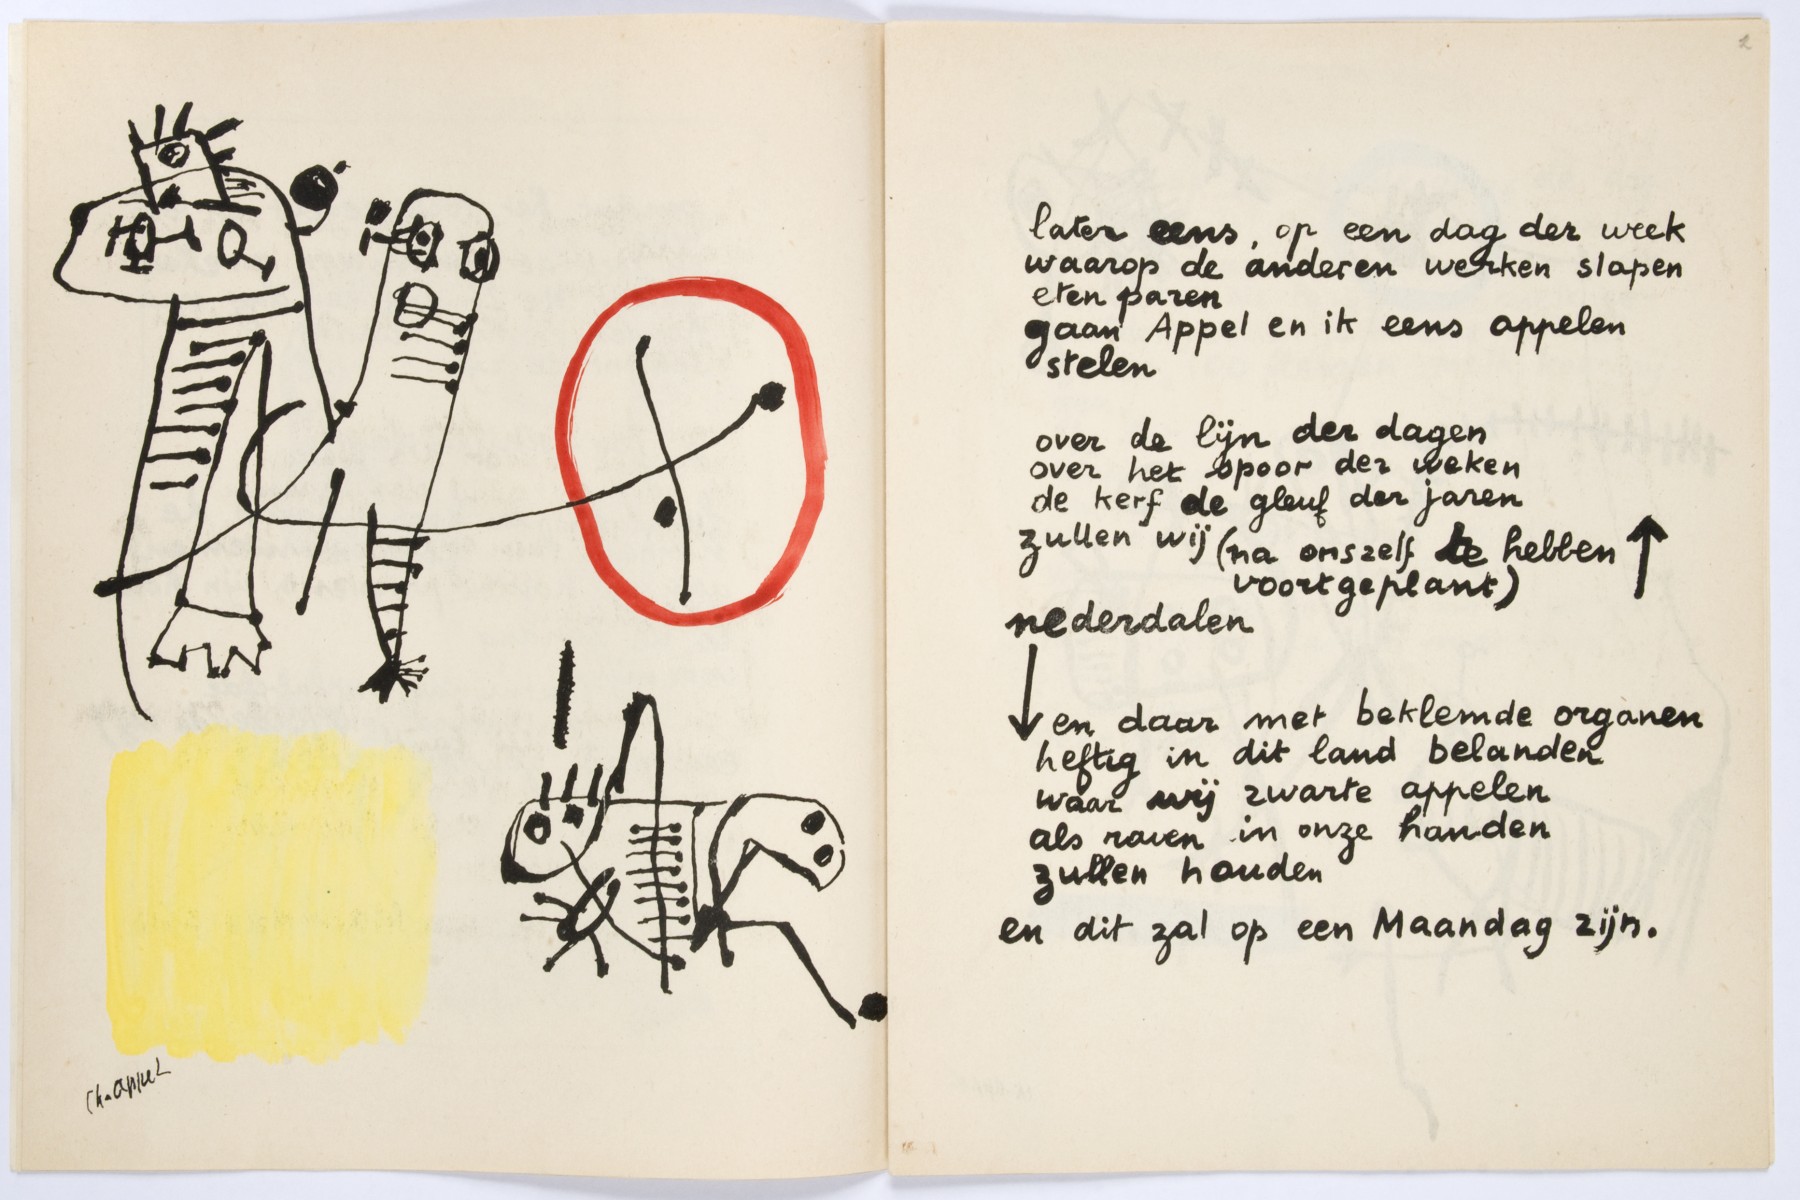 ck. appel
2
later eens, op een dag der week
waarop de anderen werken slapen
eten paren
gaan Appel en ik eens appelen
stelen
over de lijn der dagen
over het spoor der weken
de kerf de gleuf der jaren
zullen wij (na onszelf te hebben
voortgeplant)
nederdalen
en daar met beklemde organen
heftig in dit land belanden
waar wij zwarte appelen
als raven in onze handen
zullen houden
en dit zal op een Maandag zijn.